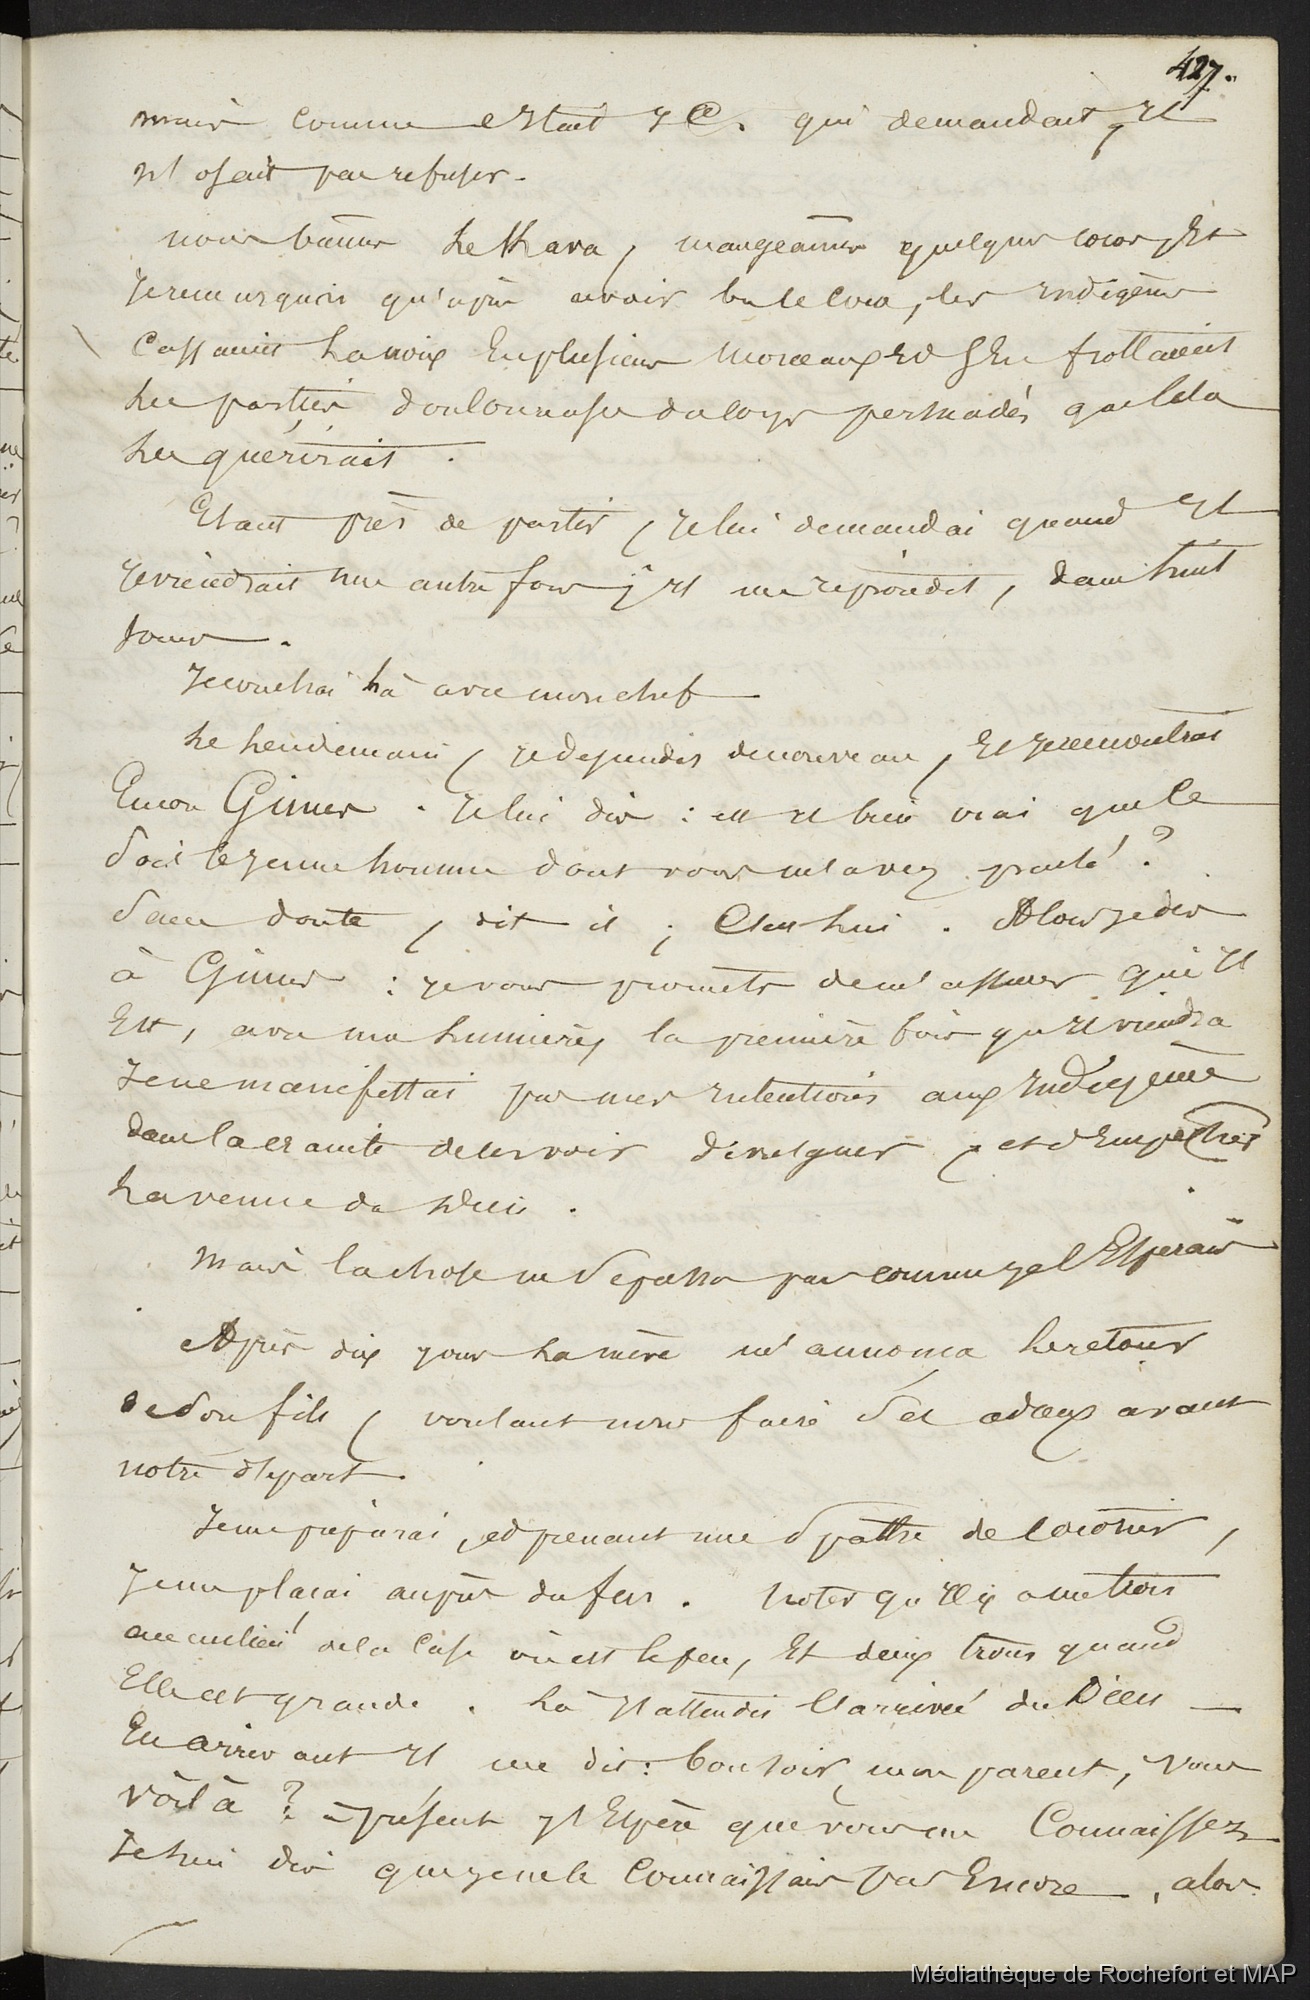 427.
mais comme c'etait qui demandait, il
n'osait pas refuser.
nous bûmes le Kava, mangeames quelques cocos, Et
Je remarquais qu'après avoir bu le coco, les indigènes
Cassaient la noix En plusieurs morceaux Et s'En frottaient
les parties douloureuses du corps persuadés que cela
les guérirait.
Etant près de partir, je lui demandai quand il
reviendrait une autre fois; il me repondit, dans huit
Jours.
Je couchai là avec mon chef
Le lendemain, je descendis de nouveau, Et je rencontrai
Encor Gimer. Je lui dis: est il bien vrai que ce
soit le jeune homme dont vous m'avez parlé?
Sans doute, dit il; C'est lui. Alors je dis
à Gimer: je vous promets de m'assurer qui il
Est, avec ma lumière, la première fois qu'il viendra
Je ne manifestai pas mes intentions aux indigènes
dans la crainte de les voir divulguer, et d'Empêcher
la venue du Dieu.
Mais la chose ne se passa pas comme je l'Esperais
Après dix jours la mère m'annonça le retour
de son fils, voulant nous faire ses adieux avant
notre départ.
Je me préparai, et prenant une spathe de cocotier,
Je me plaçai auprès du feu. Notez qu'il y a un trou
au milieu de la Case où est le feu, Et deux trous quand
Elle est grande. Là j'attendis l'arrivée du Dieu
En arrivant il me dit: bonsoir, mon parent, vous
voilà? à présent j'Espère que vous me Connaissez
Je lui dis que je ne le Connaissais pas Encore, alors
Médiathèque de Rochefort et MAP